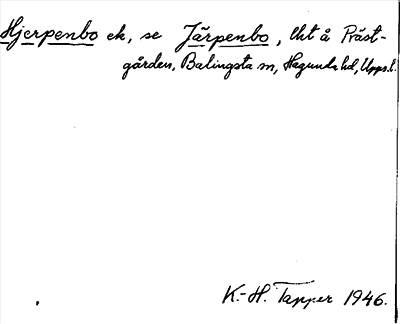 Hjerpenbo ek, se Järpenbo, lht å Präst-
gården, Balingsta sn, Hagunda hd, Upps. l.
K.-H. Tapper 1946.